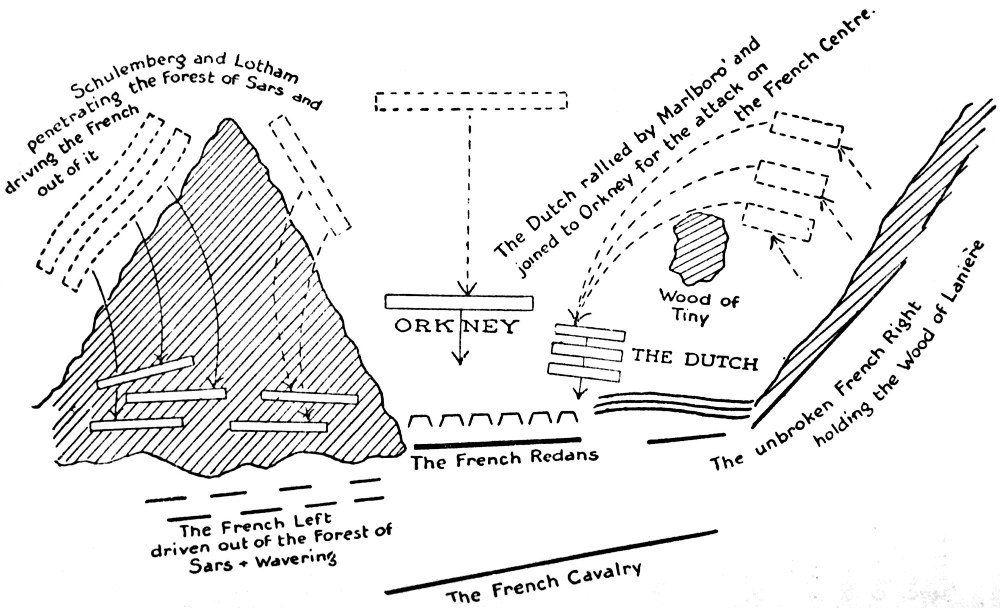 Schulemberg and Lotham
penetrating the Forest of Sars and
driving the French
out of it
The Dutch rallied by Marlboro' and
joined to Orkney for the attack on
the French Centre.
Wood of
Tiny
ORKNEY
THE DUTCH
The unbroken French Right
holding the Wood of Lanière
The French Redans
The French Left
driven out of the Forest of
Sars + Wavering
The French Cavalry